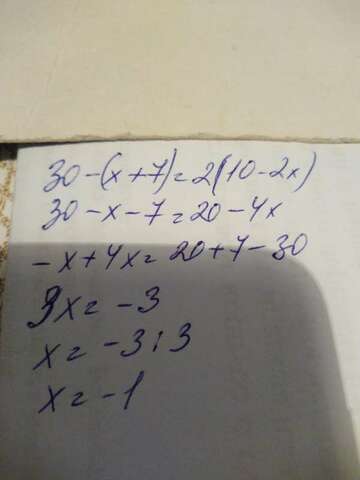 30-(x+7)=2(10-2x)
30-x-7=20-4x
-x+4x=20+7-30
3x=-3
x=-3:3
x=-1